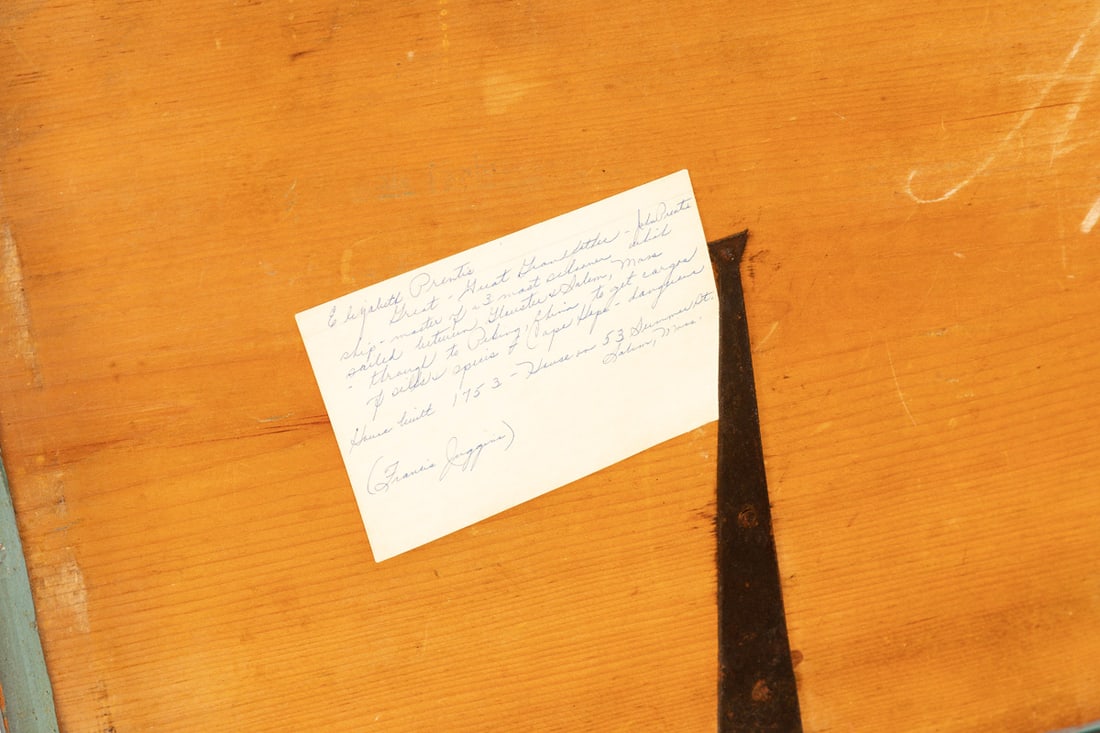 Elizabeth Prentis
Great - Great Grandfather - John Prentis
ship - master of a 3 mast schooner which
sailed between Gloucester & Salem, Mass
- through to Peking, China to get cargos
of silks & spices & Cape Hope - dangerous
House built 1753 - House on 53 Summer St.
Salem, Mass.
(Francis Juggins)